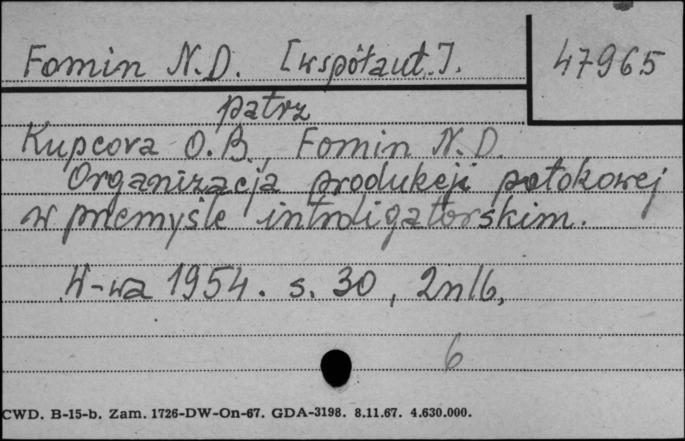 Fomin N.D. [współaut.].
47965
patrz
Kupcova O.B., Fomin N.D.
Organizacja produkcji potokowej
w przemyśle introligatorskim.
W-wa 1954. s. 30, 2nlb,
6
CWD. B-15-b. Zam. 1726-DW-On-67. GDA-3198. 8.11.67. 4.630.000.